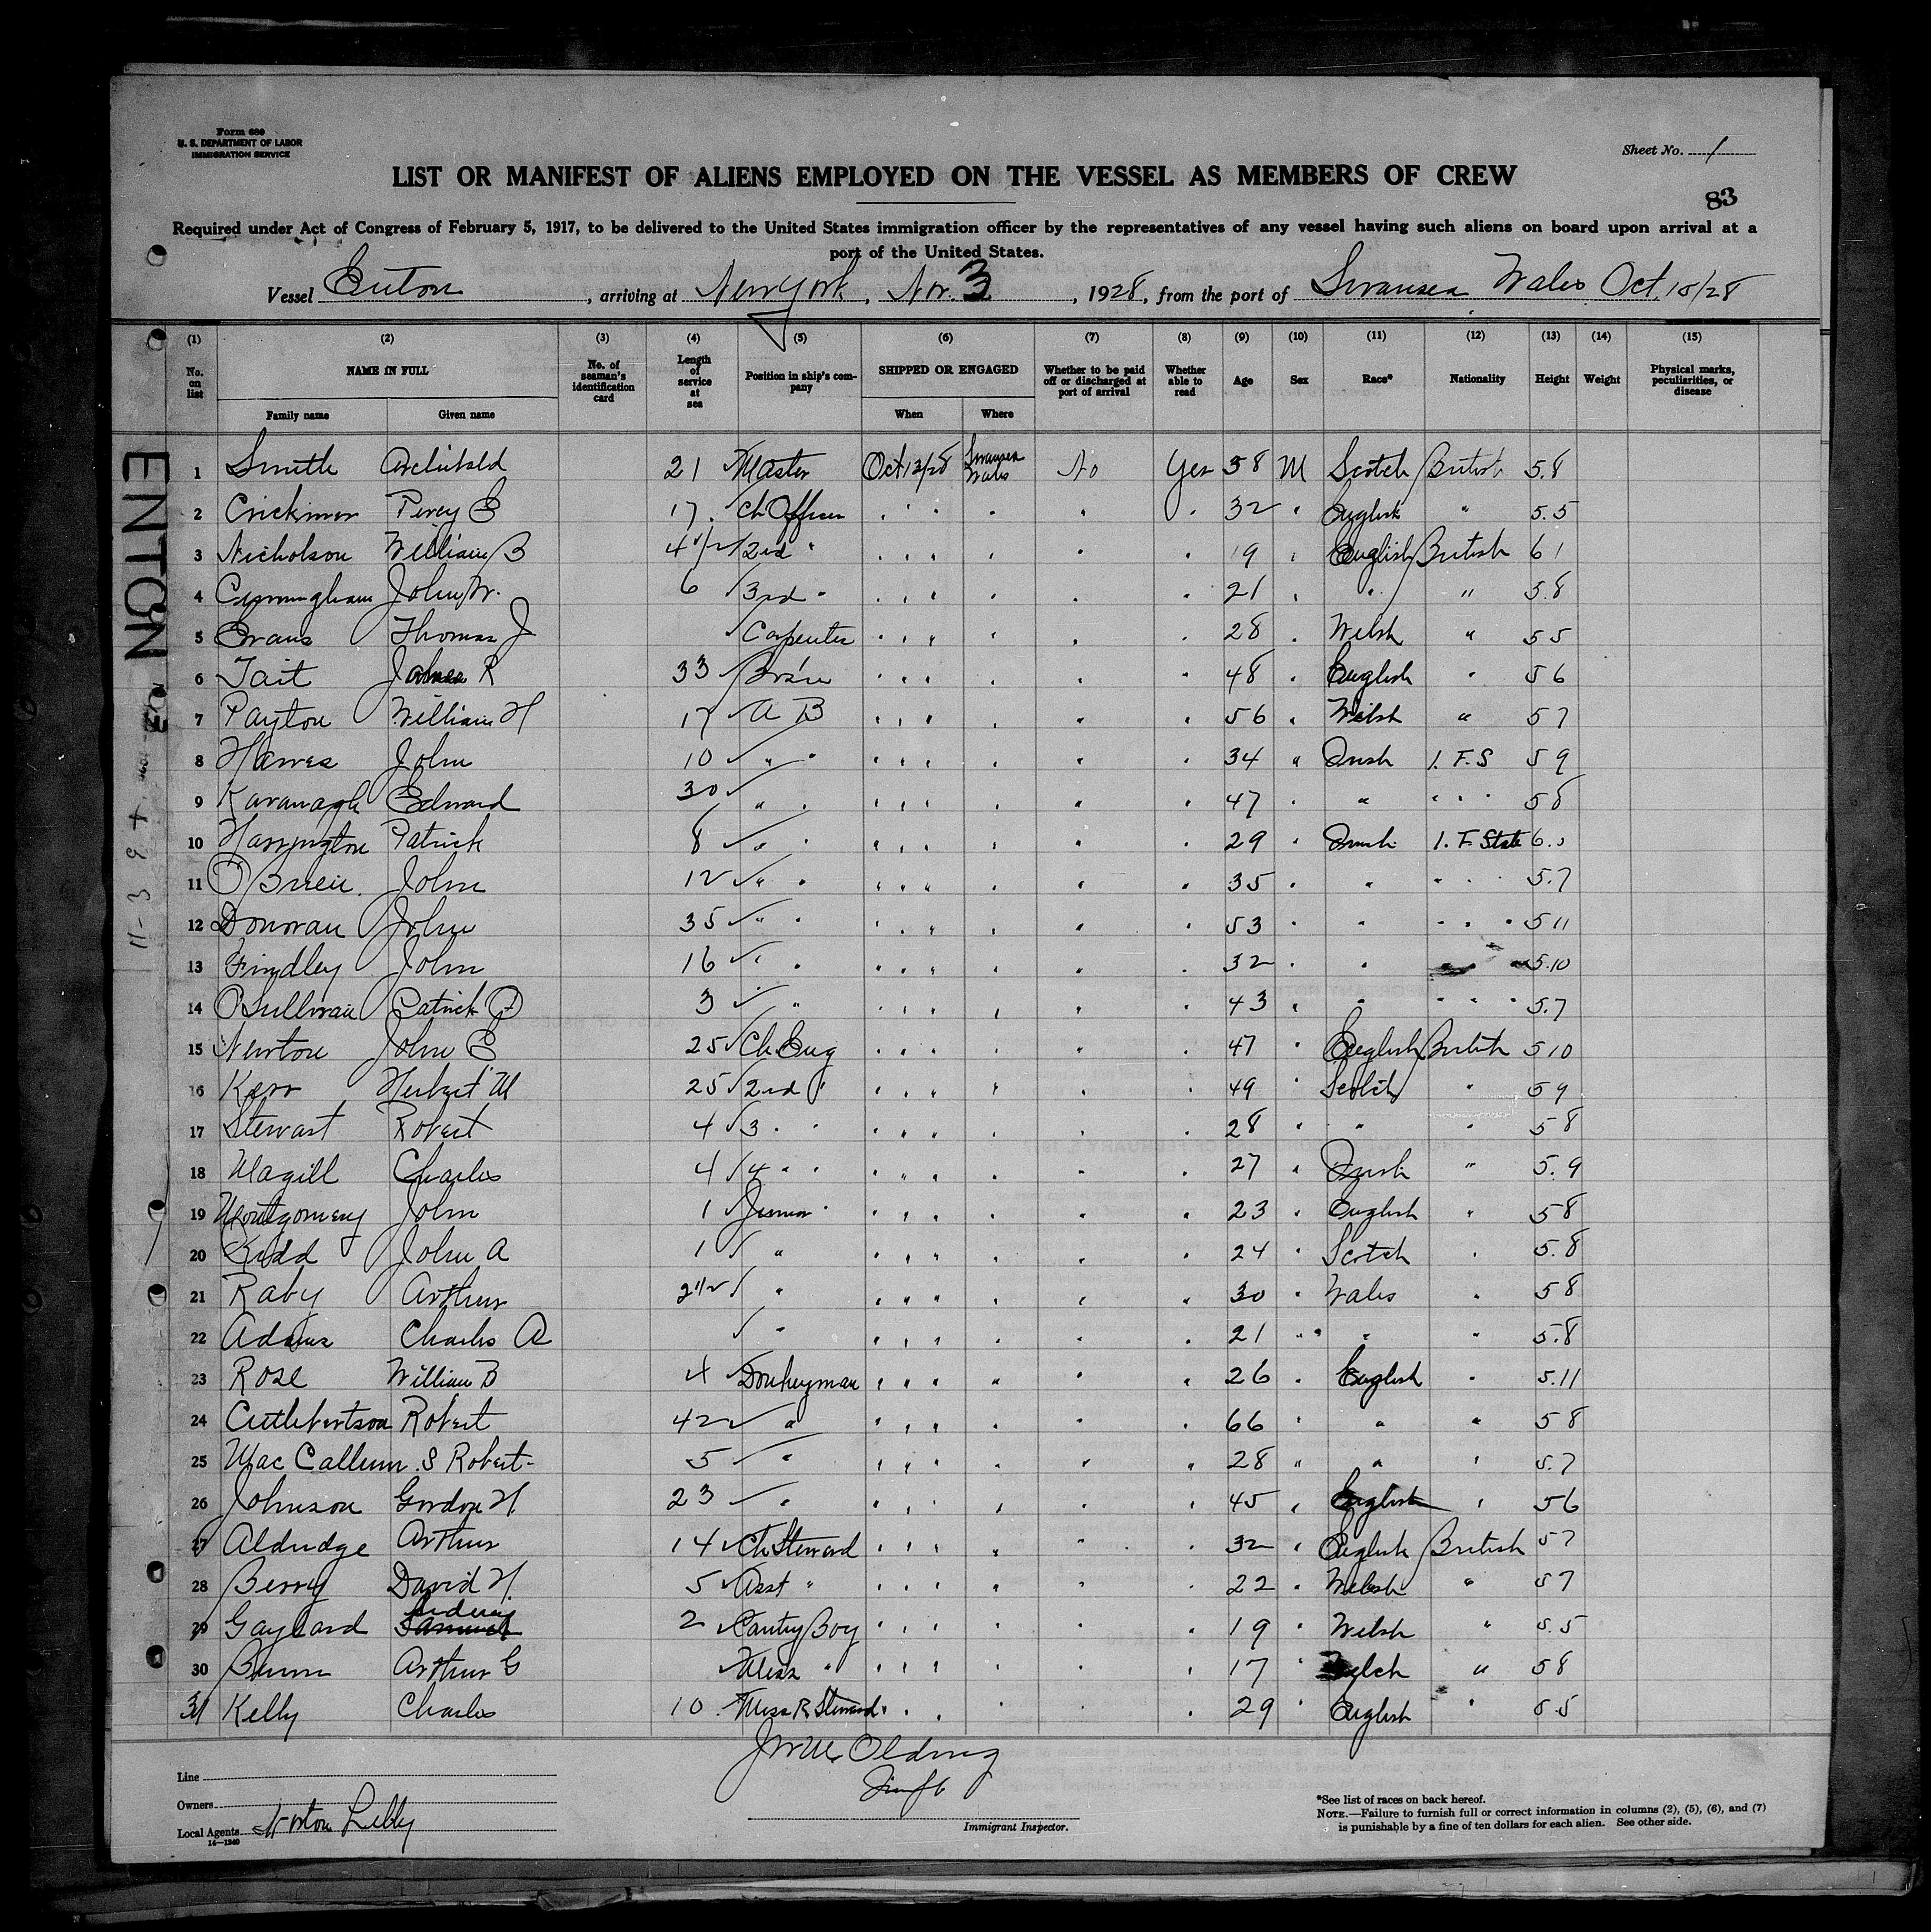 Form 680
U. S. DEPARTMENT OF LABOR
IMMIGRATION SERVICE
Sheet No. 1
LIST OR MANIFEST OF ALIENS EMPLOYED ON THE VESSEL AS MEMBERS OF CREW
83
Required under Act of Congress of February 5, 1917, to be delivered to the United States immigration officer by the representatives of any vessel having such aliens on board upon arrival at a
port of the United States.
Vessel Enton, arriving at New York, Nov. 3, 1928, from the port of Swansea Wales Oct. 15/28
(1) (2) (3) (4) (5) (6) (7) (8) (9) (10) (11) (12) (13) (14) (15)
No. on list NAME IN FULL No. of seaman's identification card Length of service at sea Position in ship's company SHIPPED OR ENGAGED Whether to be paid off or discharged at port of arrival Whether able to read Age Sex Race* Nationality Height Weight Physical marks, peculiarities, or disease
Family name Given name When Where
ENTON
11-3 9
1 Smith Archibald 21 Master Oct 12/28 Swansea Wales No Yes 58 M Scotch British 5.8
2 Crickmer Percy E 17. Ch Officer " " " " " " 32 " English " 5.5
3 Nicholson William B 4 1/2 2nd " " " " " " " 19 " English British 61
4 Cunningham John W. 6 3rd " " " " " " " 21 " " " 5.8
5 Evans Thomas J Carpenter " " " " " " 28 " Welsh " 55
6 Tait James R 33 Bos'n " " " " " " 48 " English " 56
7 Payton William H 17 A B " " " " " " 56 " Welsh " 57
8 Hawes John 10 " " " " " " " " 34 " Irish I. F. S 59
9 Kavanagh Edward 30 " " " " " " " " 47 " " " " " 58
10 Harrington Patrick 8 " " " " " " " " 29 " Irish I. F. State 6.0
11 O'Brien John 12 " " " " " " " " 35 " " " " " 5.7
12 Donovan John 35 " " " " " " " " 53 " " " " " 511
13 Findley John 16 " " " " " " " " 32 " " 5.10
14 O'Sullivan Patrick P 3 " " " " " " " " 43 " " " " " 5.7
15 Newton John E 25 Ch Eng " " " " " " 47 " English British 510
16 Kerr Herbert M 25 2nd " " " " " " " 49 " Scotch " 59
17 Stewart Robert 4 3 " " " " " " " " 28 " " " 58
18 Magill Charles 4 4 " " " " " " " " 27 " Irish " 5.9
19 Montgomery John 1 Junior " " " " " " " 23 " English " 58
20 Kidd John A 1 " " " " " " " 24 " Scotch " 5.8
21 Raby Arthur 2 1/2 " " " " " " " 30 " Wales " 58
22 Adams Charles A " " " " " " " 21 " " " 5.8
23 Rose William B 4 Donkeyman " " " " " " 26 " English " 5.11
24 Cuthbertson Robert 42 " " " " " " " 66 " " " 58
25 MacCallum S Robert 5 " " " " " " " 28 " " " 5.7
26 Johnson Gordon H. 23 " " " " " " " 45 " English " 56
27 Aldridge Arthur 14 Ch Steward " " " " " " 32 " English British 57
28 Berry David H. 5 Asst " " " " " " " 22 " Welsh " 57
29 Gaylard Samuel 2 Pantry Boy " " " " " " 19 " Welsh " 5.5
30 Bunn Arthur G Mess " " " " " " " 17 " Welch " 58
31 Kelly Charles 10 Mess R. Steward " " " " " 29 " English " 5.5
Line
Owners
Local Agents Norton Lilly
14—1240
Immigrant Inspector.
*See list of races on back hereof.
NOTE.—Failure to furnish full or correct information in columns (2), (5), (6), and (7)
is punishable by a fine of ten dollars for each alien. See other side.